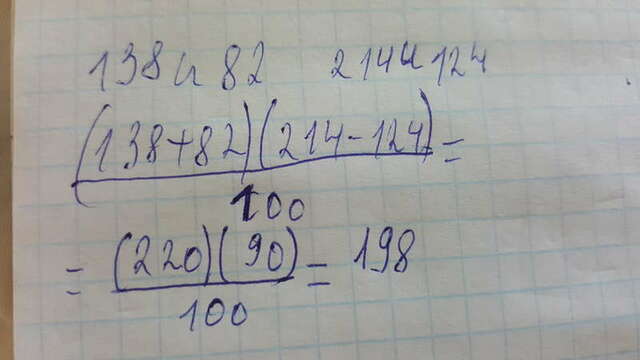 138 и 82 214 и 124
(138+82)(214-124) =
100
= (220)(90) = 198
100